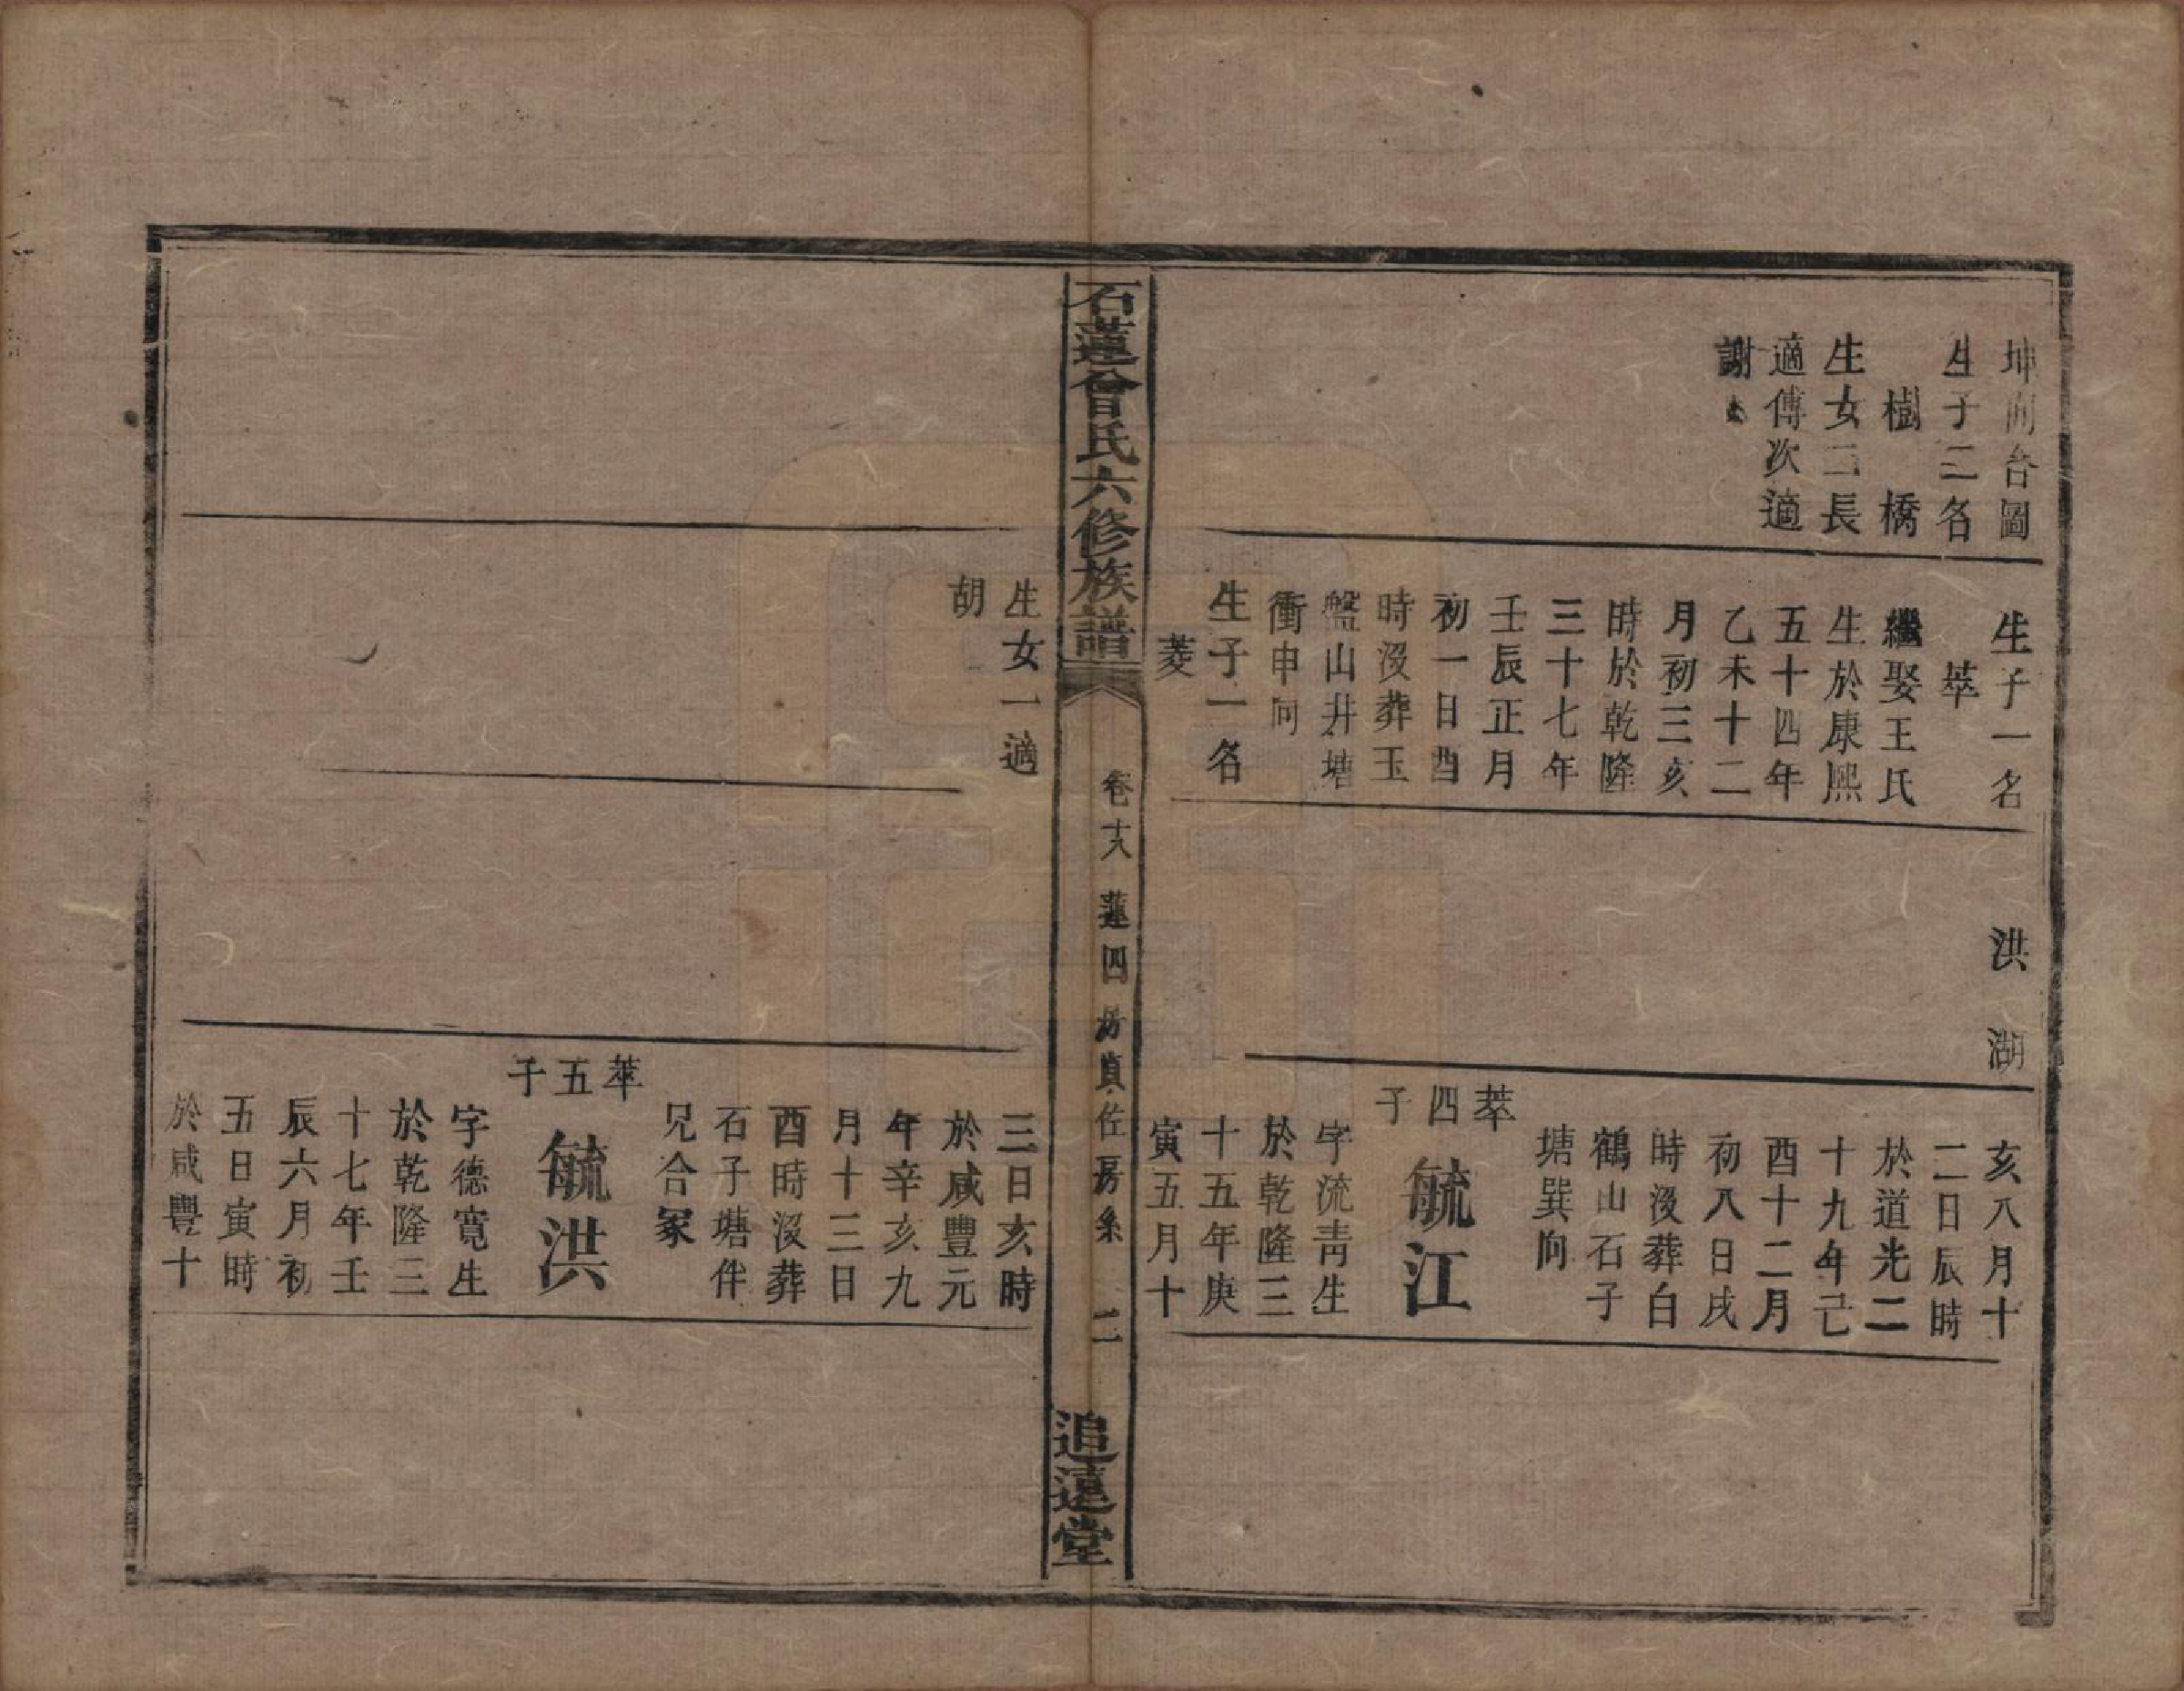 坤向合圖
生子二名
樹橋
生女二長
適傅次適
謝
生子一名
萃
繼娶王氏
生於康熙
五十四年
乙未十二
月初三亥
時於乾隆
三十七年
壬辰正月
初一日酉
時沒葬玉
盤山井塘
衝申向
生子一名
菱
洪湖
亥八月十
二日辰時
於道光二
十九年己
酉十二月
初八日戌
時沒葬白
鶴山石子
塘巽向
萃四子
毓江
字流青生
於乾隆三
十五年庚
寅五月十
石蓮曾氏六修族譜
卷十八 蓮四房貞佐房系 二
追遠堂
生女一適
胡
三日亥時
於咸豐元
年辛亥九
月十三日
酉時沒葬
石子塘伴
兄合冢
萃五子
毓洪
字德寬生
於乾隆三
十七年壬
辰六月初
五日寅時
於咸豐十